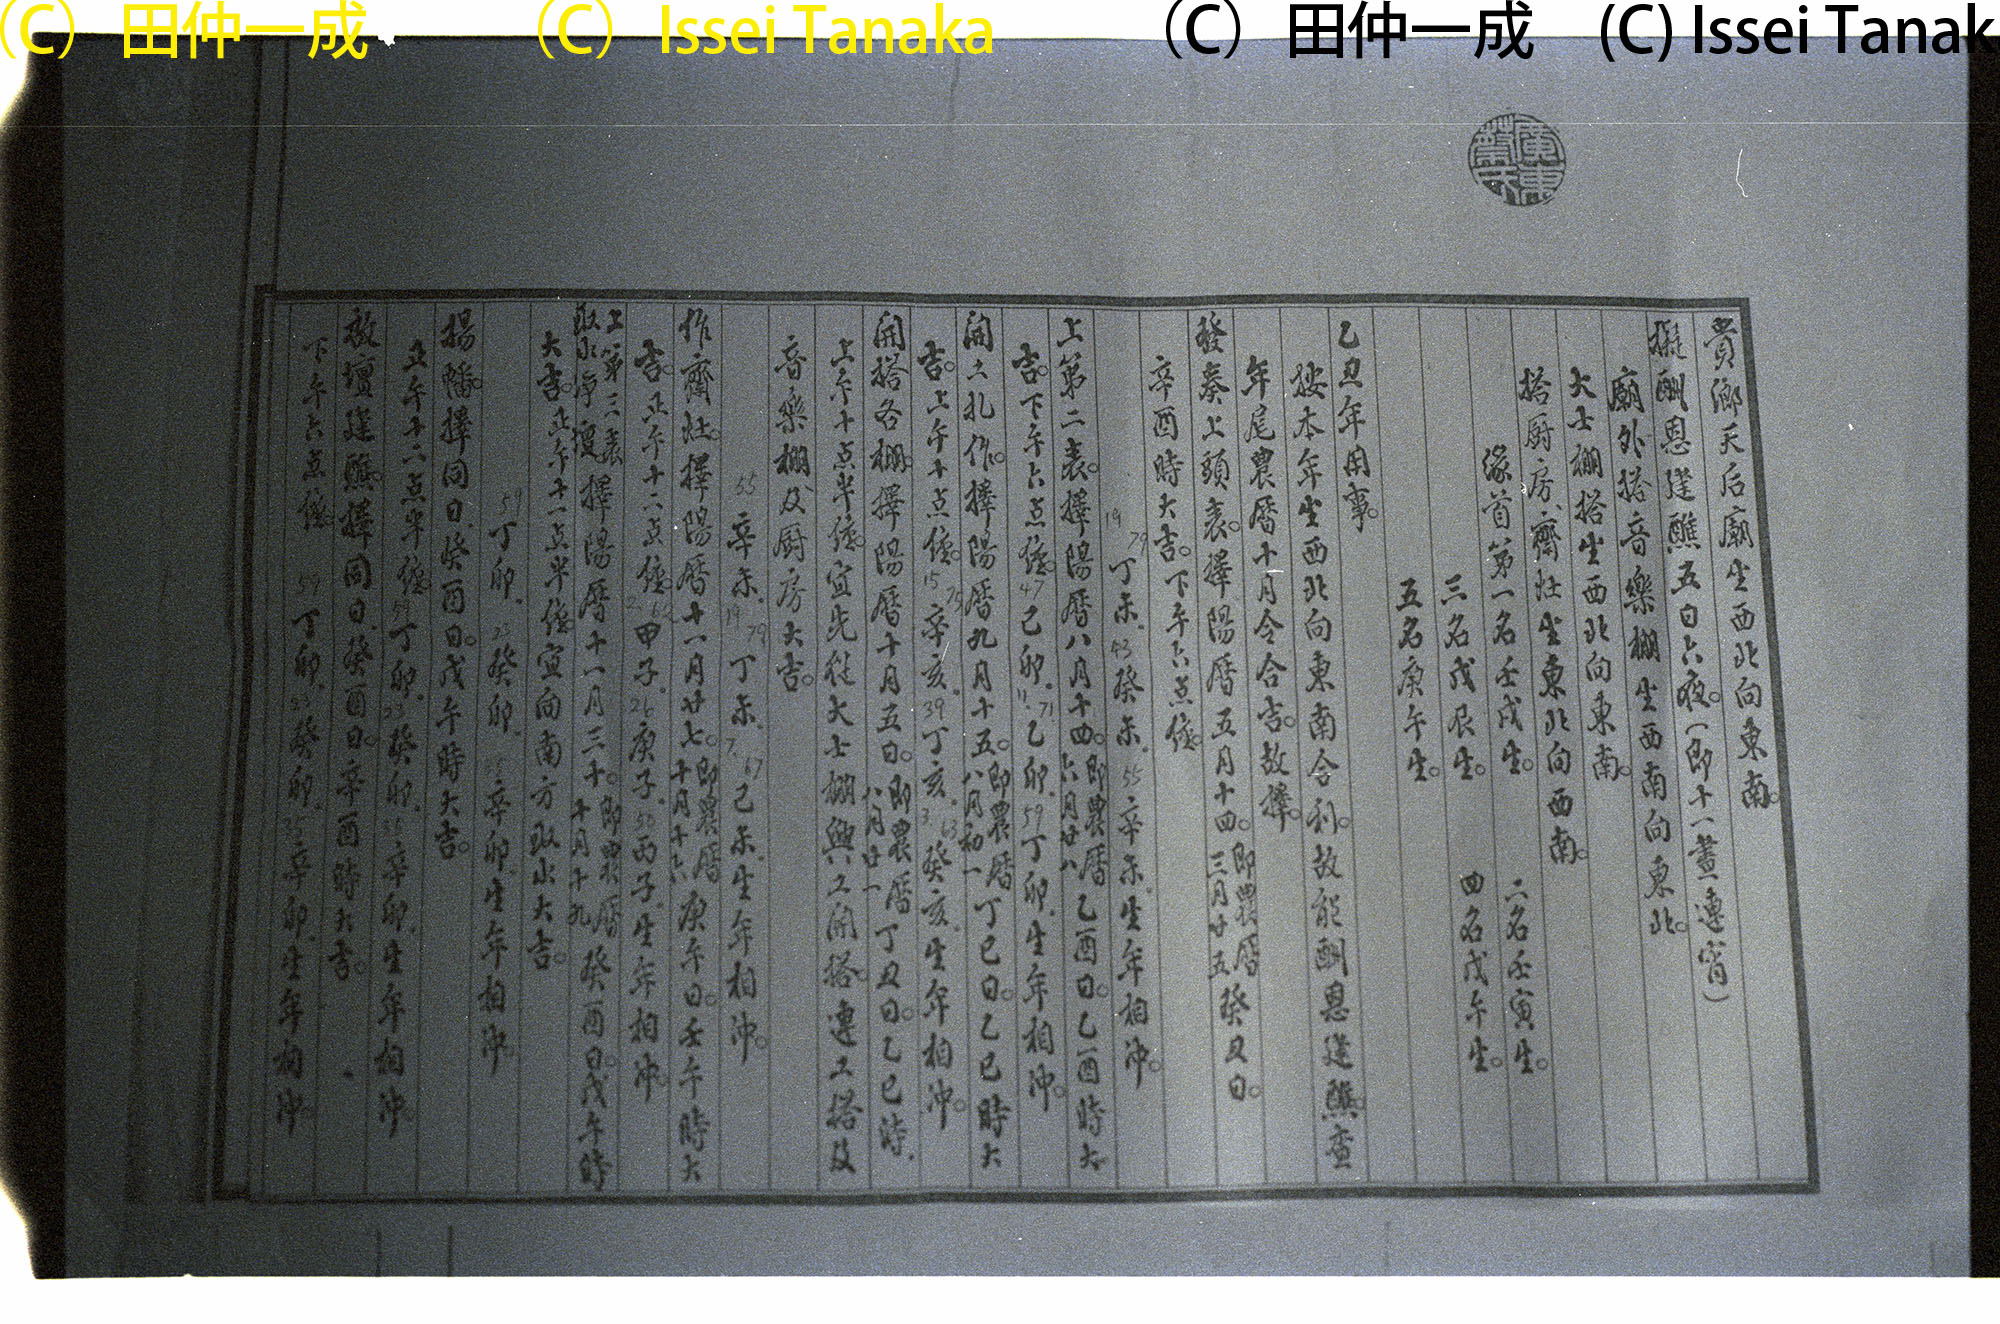 (C) 田仲一成 (C) Issei Tanaka (C) 田仲一成 (C) Issei Tanak
廣東蔡氏
貴鄉天后廟坐西北向東南。
擬酬恩建醮五日六夜。(即十一晝連宵)
廟外搭音樂棚坐西南向東北。
大士棚搭坐西北向東南。
搭厨房、齋灶坐東北向西南。
緣首第一名壬戌生。 二名壬寅生。
三名戊辰生。 四名戊午生。
五名庚午生。
乙丑年用事。
按本年坐西北向東南合利。故能酬恩建醮。查
年尾農曆十月令合吉。故擇。
發奏上頭表。擇陽曆五月十四。即農曆三月廿五癸丑日。
辛酉時大吉。下午六点後。
19 79 丁未. 43 癸未. 55 辛未. 生年相沖。
上第二表。擇陽曆八月十四。即農曆六月廿八乙酉日。乙酉時大
吉。下午六点後。 47 己卯. 11 71 乙卯. 59 丁卯. 生年相沖。
開工扎作。擇陽曆九月十五。即農曆八月初一丁巳日。乙巳時大
吉。上午十点後。 15 75 辛亥. 39 丁亥. 3 63 癸亥. 生年相沖。
開搭各棚。擇陽曆十月五日。即農曆八月廿一丁丑日。乙巳時.
上午十点半後。宜先從大士棚興工開搭。連工搭及
音樂棚及厨房大吉。
55 辛未. 19 79 丁未. 7 67 己未. 生年相沖。
作齋灶。擇陽曆十一月廿七。即農曆十月十六庚午日。壬午時大
吉。正午十二点後。 2 62 甲子. 26 庚子. 50 丙子. 生年相沖。
上第三表取水淨壇擇陽曆十一月三十。即農曆十月十九癸酉日。戊午時
大吉。正午十一点半後宜向南方取水大吉。
59 丁卯. 23 癸卯. 35 辛卯. 生年相沖。
揚幡。擇同日.癸酉日。戊午時大吉。
正午十二点半後。 59 丁卯. 23 癸卯. 35 辛卯. 生年相沖。
啟壇建醮。擇同日.癸酉日。辛酉時大吉。
下午六点後。 59 丁卯. 23 癸卯. 35 辛卯. 生年相沖。